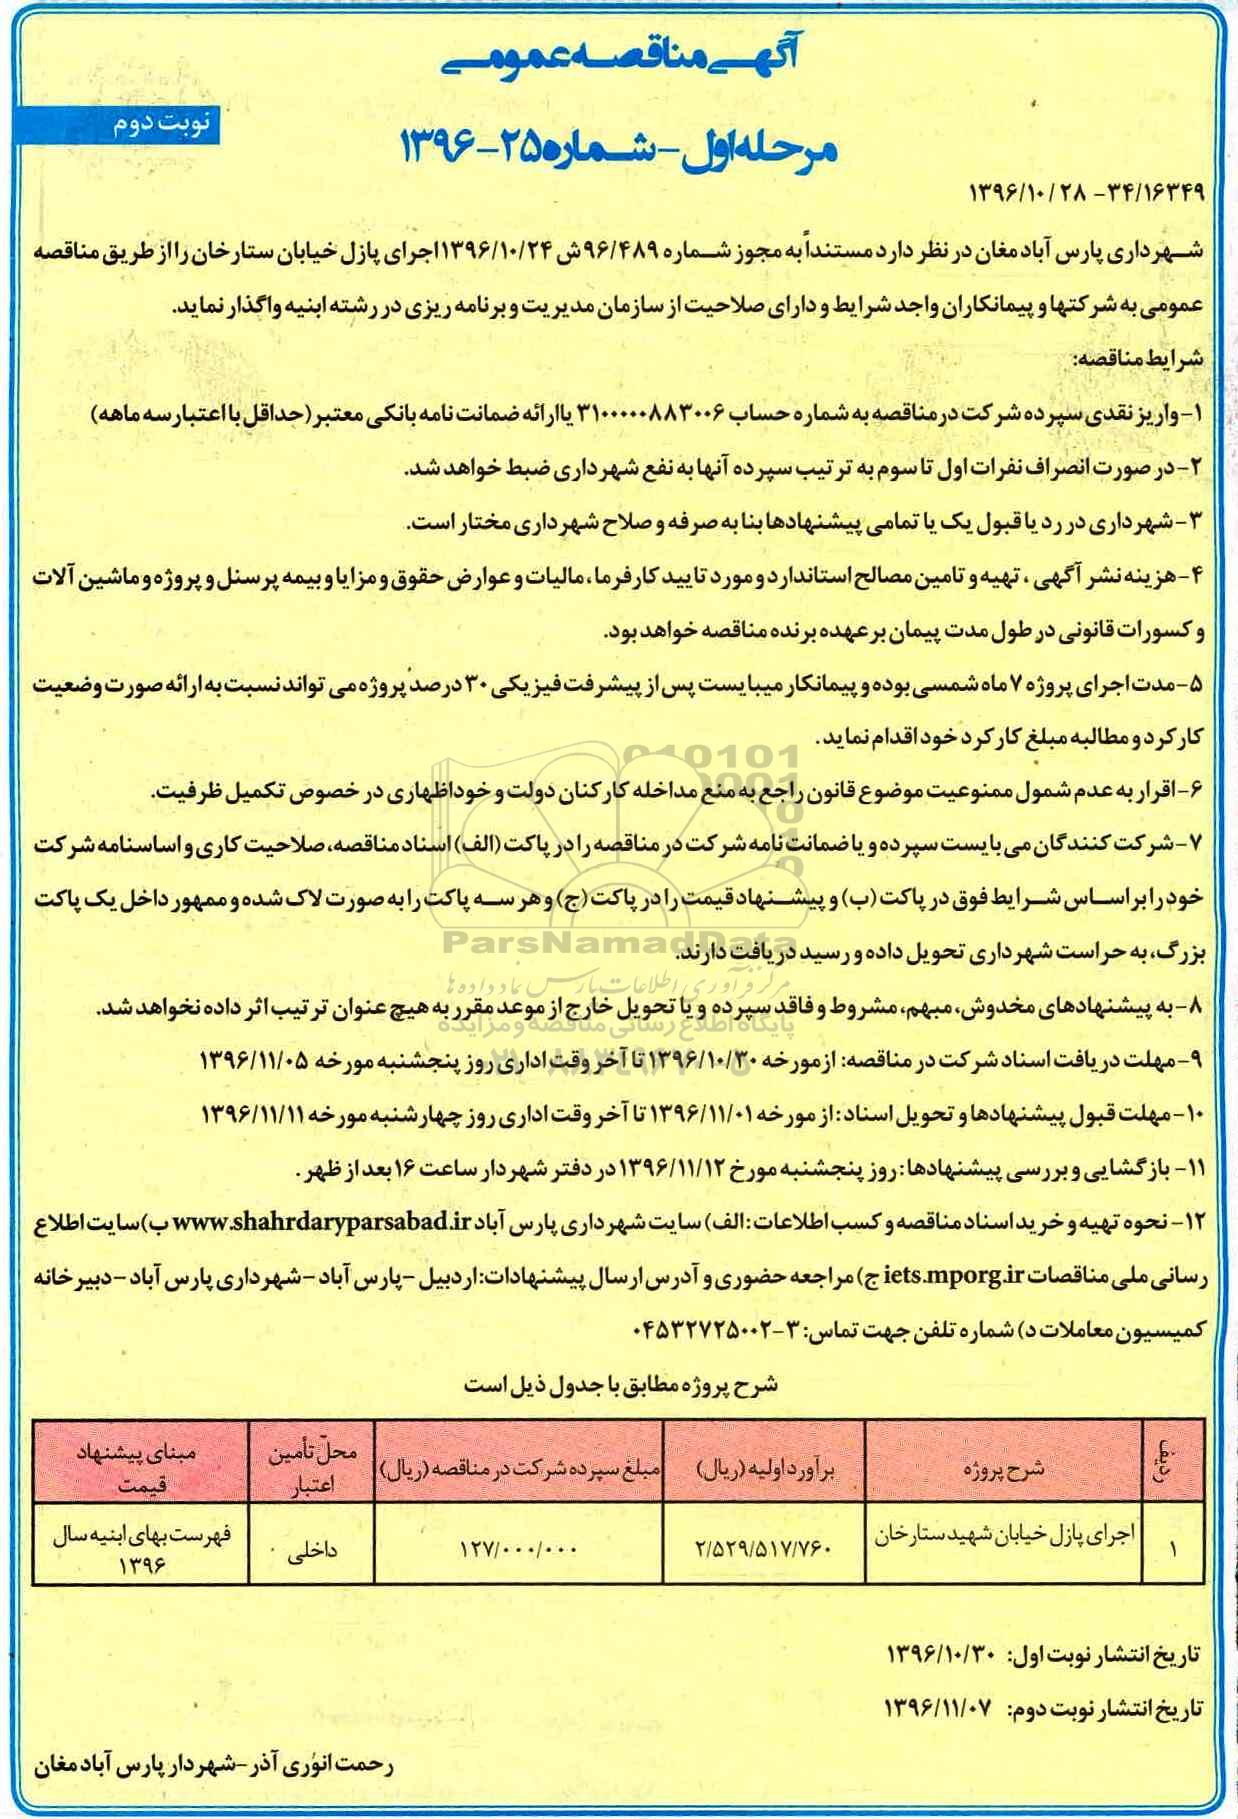 آگهی مناقصه عمومی
نوبت دوم
مرحله اول - شماره ۲۵-۱۳۹۶
۳۴/۱۶۳۴۹- ۱۳۹۶/۱۰/۲۸
شهرداری پارس آباد مغان در نظر دارد مستنداً به مجوز شماره ۹۶/۴۸۹ش ۱۳۹۶/۱۰/۲۴ اجرای پازل خیابان ستارخان را از طریق مناقصه
عمومی به شرکتها و پیمانکاران واجد شرایط و دارای صلاحیت از سازمان مدیریت و برنامه ریزی در رشته ابنیه واگذار نماید.
شرایط مناقصه:
۱- واریز نقدی سپرده شرکت در مناقصه به شماره حساب ۳۱۰۰۰۰۰۸۸۳۰۰۶ یا ارائه ضمانت نامه بانکی معتبر (حداقل با اعتبار سه ماهه)
۲- در صورت انصراف نفرات اول تا سوم به ترتیب سپرده آنها به نفع شهرداری ضبط خواهد شد.
۳- شهرداری در رد یا قبول یک یا تمامی پیشنهادها بنا به صرفه و صلاح شهرداری مختار است.
۴- هزینه نشر آگهی ، تهیه و تامین مصالح استاندارد و مورد تایید کارفرما ، مالیات و عوارض حقوق و مزایا و بیمه پرسنل و پروژه و ماشین آلات
و کسورات قانونی در طول مدت پیمان بر عهده برنده مناقصه خواهد بود.
۵- مدت اجرای پروژه ۷ ماه شمسی بوده و پیمانکار میبایست پس از پیشرفت فیزیکی ۳۰ درصد پروژه می تواند نسبت به ارائه صورت وضعیت
کارکرد و مطالبه مبلغ کارکرد خود اقدام نماید .
۶- اقرار به عدم شمول ممنوعیت موضوع قانون راجع به منع مداخله کارکنان دولت و خود اظهاری در خصوص تکمیل ظرفیت.
۷- شرکت کنندگان می بایست سپرده و یا ضمانت نامه شرکت در مناقصه را در پاکت (الف) اسناد مناقصه، صلاحیت کاری و اساسنامه شرکت
خود را بر اساس شرایط فوق در پاکت (ب) و پیشنهاد قیمت را در پاکت (ج) و هر سه پاکت را به صورت لاک شده و ممهور داخل یک پاکت
بزرگ، به حراست شهرداری تحویل داده و رسید دریافت دارند.
ParsNamadData
مرکز فرآوری اطلاعات پارس نماد داده ها
پایگاه اطلاع رسانی مناقصه و مزایده
۸- به پیشنهادهای مخدوش، مبهم، مشروط و فاقد سپرده و یا تحویل خارج از موعد مقرر به هیچ عنوان ترتیب اثر داده نخواهد شد.
۹- مهلت دریافت اسناد شرکت در مناقصه: از مورخه ۱۳۹۶/۱۰/۳۰ تا آخر وقت اداری روز پنجشنبه مورخه ۱۳۹۶/۱۱/۰۵
۱۰- مهلت قبول پیشنهادها و تحویل اسناد : از مورخه ۱۳۹۶/۱۱/۰۱ تا آخر وقت اداری روز چهارشنبه مورخه ۱۳۹۶/۱۱/۱۱
۱۱- بازگشایی و بررسی پیشنهادها : روز پنجشنبه مورخ ۱۳۹۶/۱۱/۱۲ در دفتر شهردار ساعت ۱۶ بعد از ظهر .
۱۲- نحوه تهیه و خرید اسناد مناقصه و کسب اطلاعات : الف) سایت شهرداری پارس آباد www.shahrdaryparsabad.ir ب) سایت اطلاع
رسانی ملی مناقصات iets.mporg.ir ج) مراجعه حضوری و آدرس ارسال پیشنهادات: اردبیل - پارس آباد - شهرداری پارس آباد - دبیرخانه
کمیسیون معاملات د) شماره تلفن جهت تماس: ۳-۰۴۵۳۲۷۲۵۰۰۲
شرح پروژه مطابق با جدول ذیل است
ردیف شرح پروژه برآورد اولیه (ریال) مبلغ سپرده شرکت در مناقصه (ریال) محلّ تأمین اعتبار مبنای پیشنهاد قیمت
۱ اجرای پازل خیابان شهید ستارخان ۲/۵۲۹/۵۱۷/۷۶۰ ۱۲۷/۰۰۰/۰۰۰ داخلی فهرست بهای ابنیه سال ۱۳۹۶
تاریخ انتشار نوبت اول: ۱۳۹۶/۱۰/۳۰
تاریخ انتشار نوبت دوم: ۱۳۹۶/۱۱/۰۷
رحمت انوری آذر - شهردار پارس آباد مغان